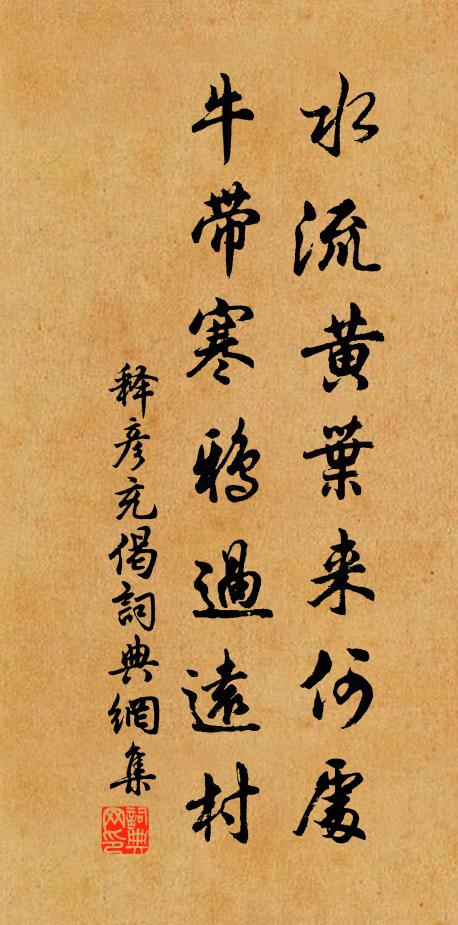 水流黄葉来何處
牛帶寒鴉過遠村
释彦充偈詞典網集
詞典网印